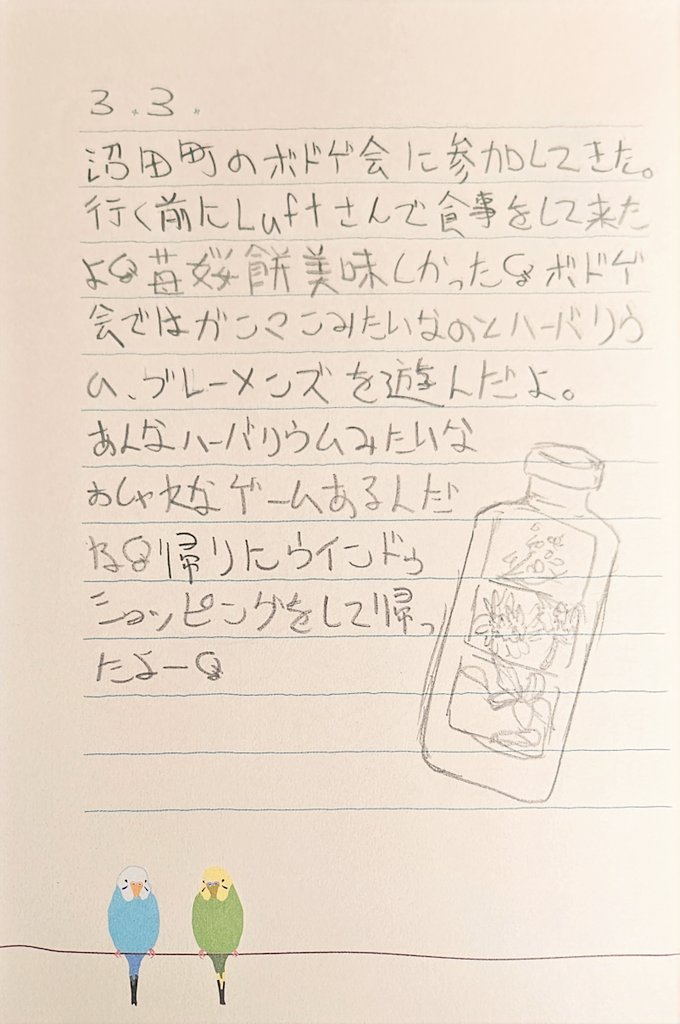 3.3.
沼田町のボドゲ会に参加してきた。
行く前にLuftさんで食事をして来た
よ 苺姫餅美味しかった ボドゲ
会ではガンマンみたいなのとハーバリウ
ム、ブレーメンズを遊んだよ。
あんなハーバリウムみたいな
おしゃれなゲームあるんだ
ね 帰りにウインドウ
ショッピングをして帰っ
たよー